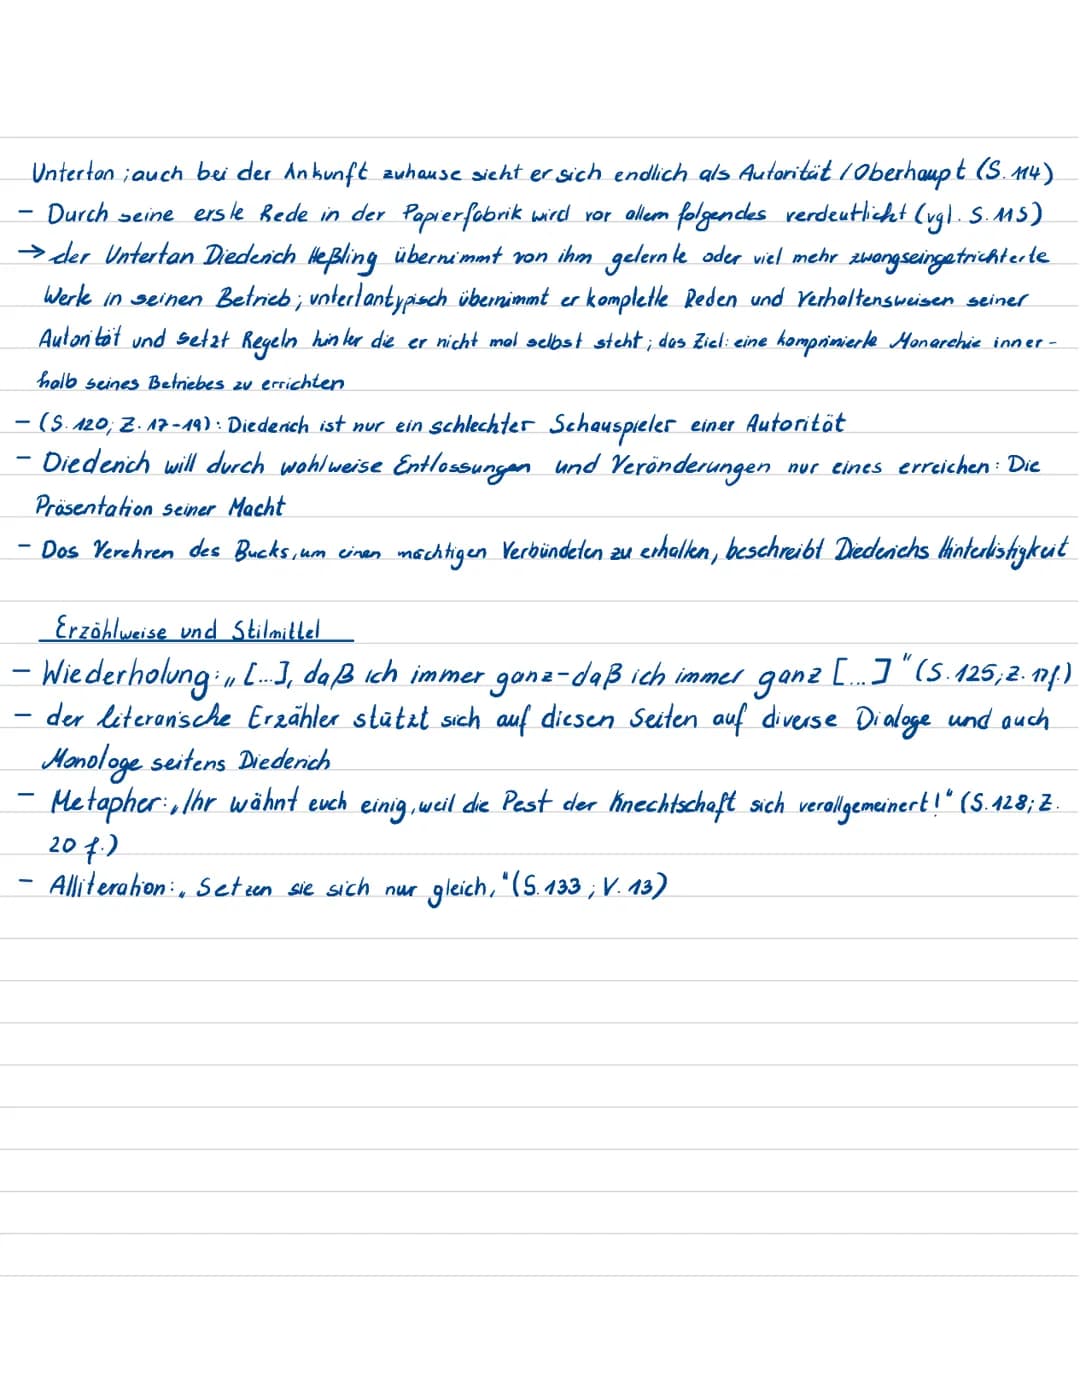 Untertan ; auch bei der Ankunft zuhause sieht er sich endlich als Autorität / Oberhaupt (S. 114)
- Durch seine erste Rede in der Papierfabrik wird vor allem folgendes verdeutlicht (vgl. S. 115)
→ der Untertan Diederich Heßling übernimmt von ihm gelernte oder viel mehr zwangseingetrichterte
Werte in seinen Betrieb ; untertantypisch übernimmt er komplette Reden und Verhaltensweisen seiner
Autorität und setzt Regeln hinter die er nicht mal selbst steht ; das Ziel: eine komprimierte Monarchie inner-
halb seines Betriebes zu errichten
- (S. 120; Z. 17-19) : Diederich ist nur ein schlechter Schauspieler einer Autorität
- Diederich will durch wahlweise Entlassungen und Veränderungen nur eines erreichen : Die
Präsentation seiner Macht
- Das Verehren des Bucks, um einen mächtigen Verbündeten zu erhalten, beschreibt Diederichs Hinterlistigkeit
Erzählweise und Stilmittel
- Wiederholung : „ [...], daß ich immer ganz - daß ich immer ganz [...] " (S. 125; Z. 17f.)
- der literarische Erzähler stützt sich auf diesen Seiten auf diverse Dialoge und auch
Monologe seitens Diederich
- Metapher : „ Ihr wähnt euch einig, weil die Pest der Knechtschaft sich verallgemeinert ! " (S. 128; Z.
20 f.)
- Alliteration : „ Setzen sie sich nur gleich, " (S. 133 ; V. 13)